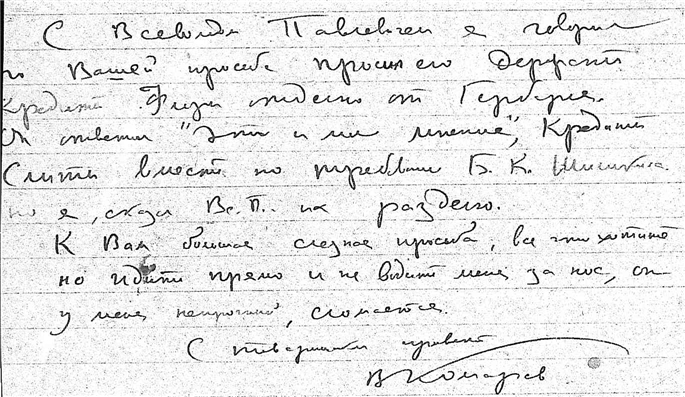 С Всеволодом Павловичем я говорил
по Вашей просьбе просил его держать
Кредиты отдельно от Гербария.
Он ответил "это и мое мнение", Кредиты
Слиты вместе по требованию Б. К. Шишкина.
но я, сказал Вс. П. их разделю.
К Вам большая слезная просьба, все что хотите
но идите прямо и не водите меня за нос, он
у меня непрочный, сломается.
С товарищеским приветом
В Комаров